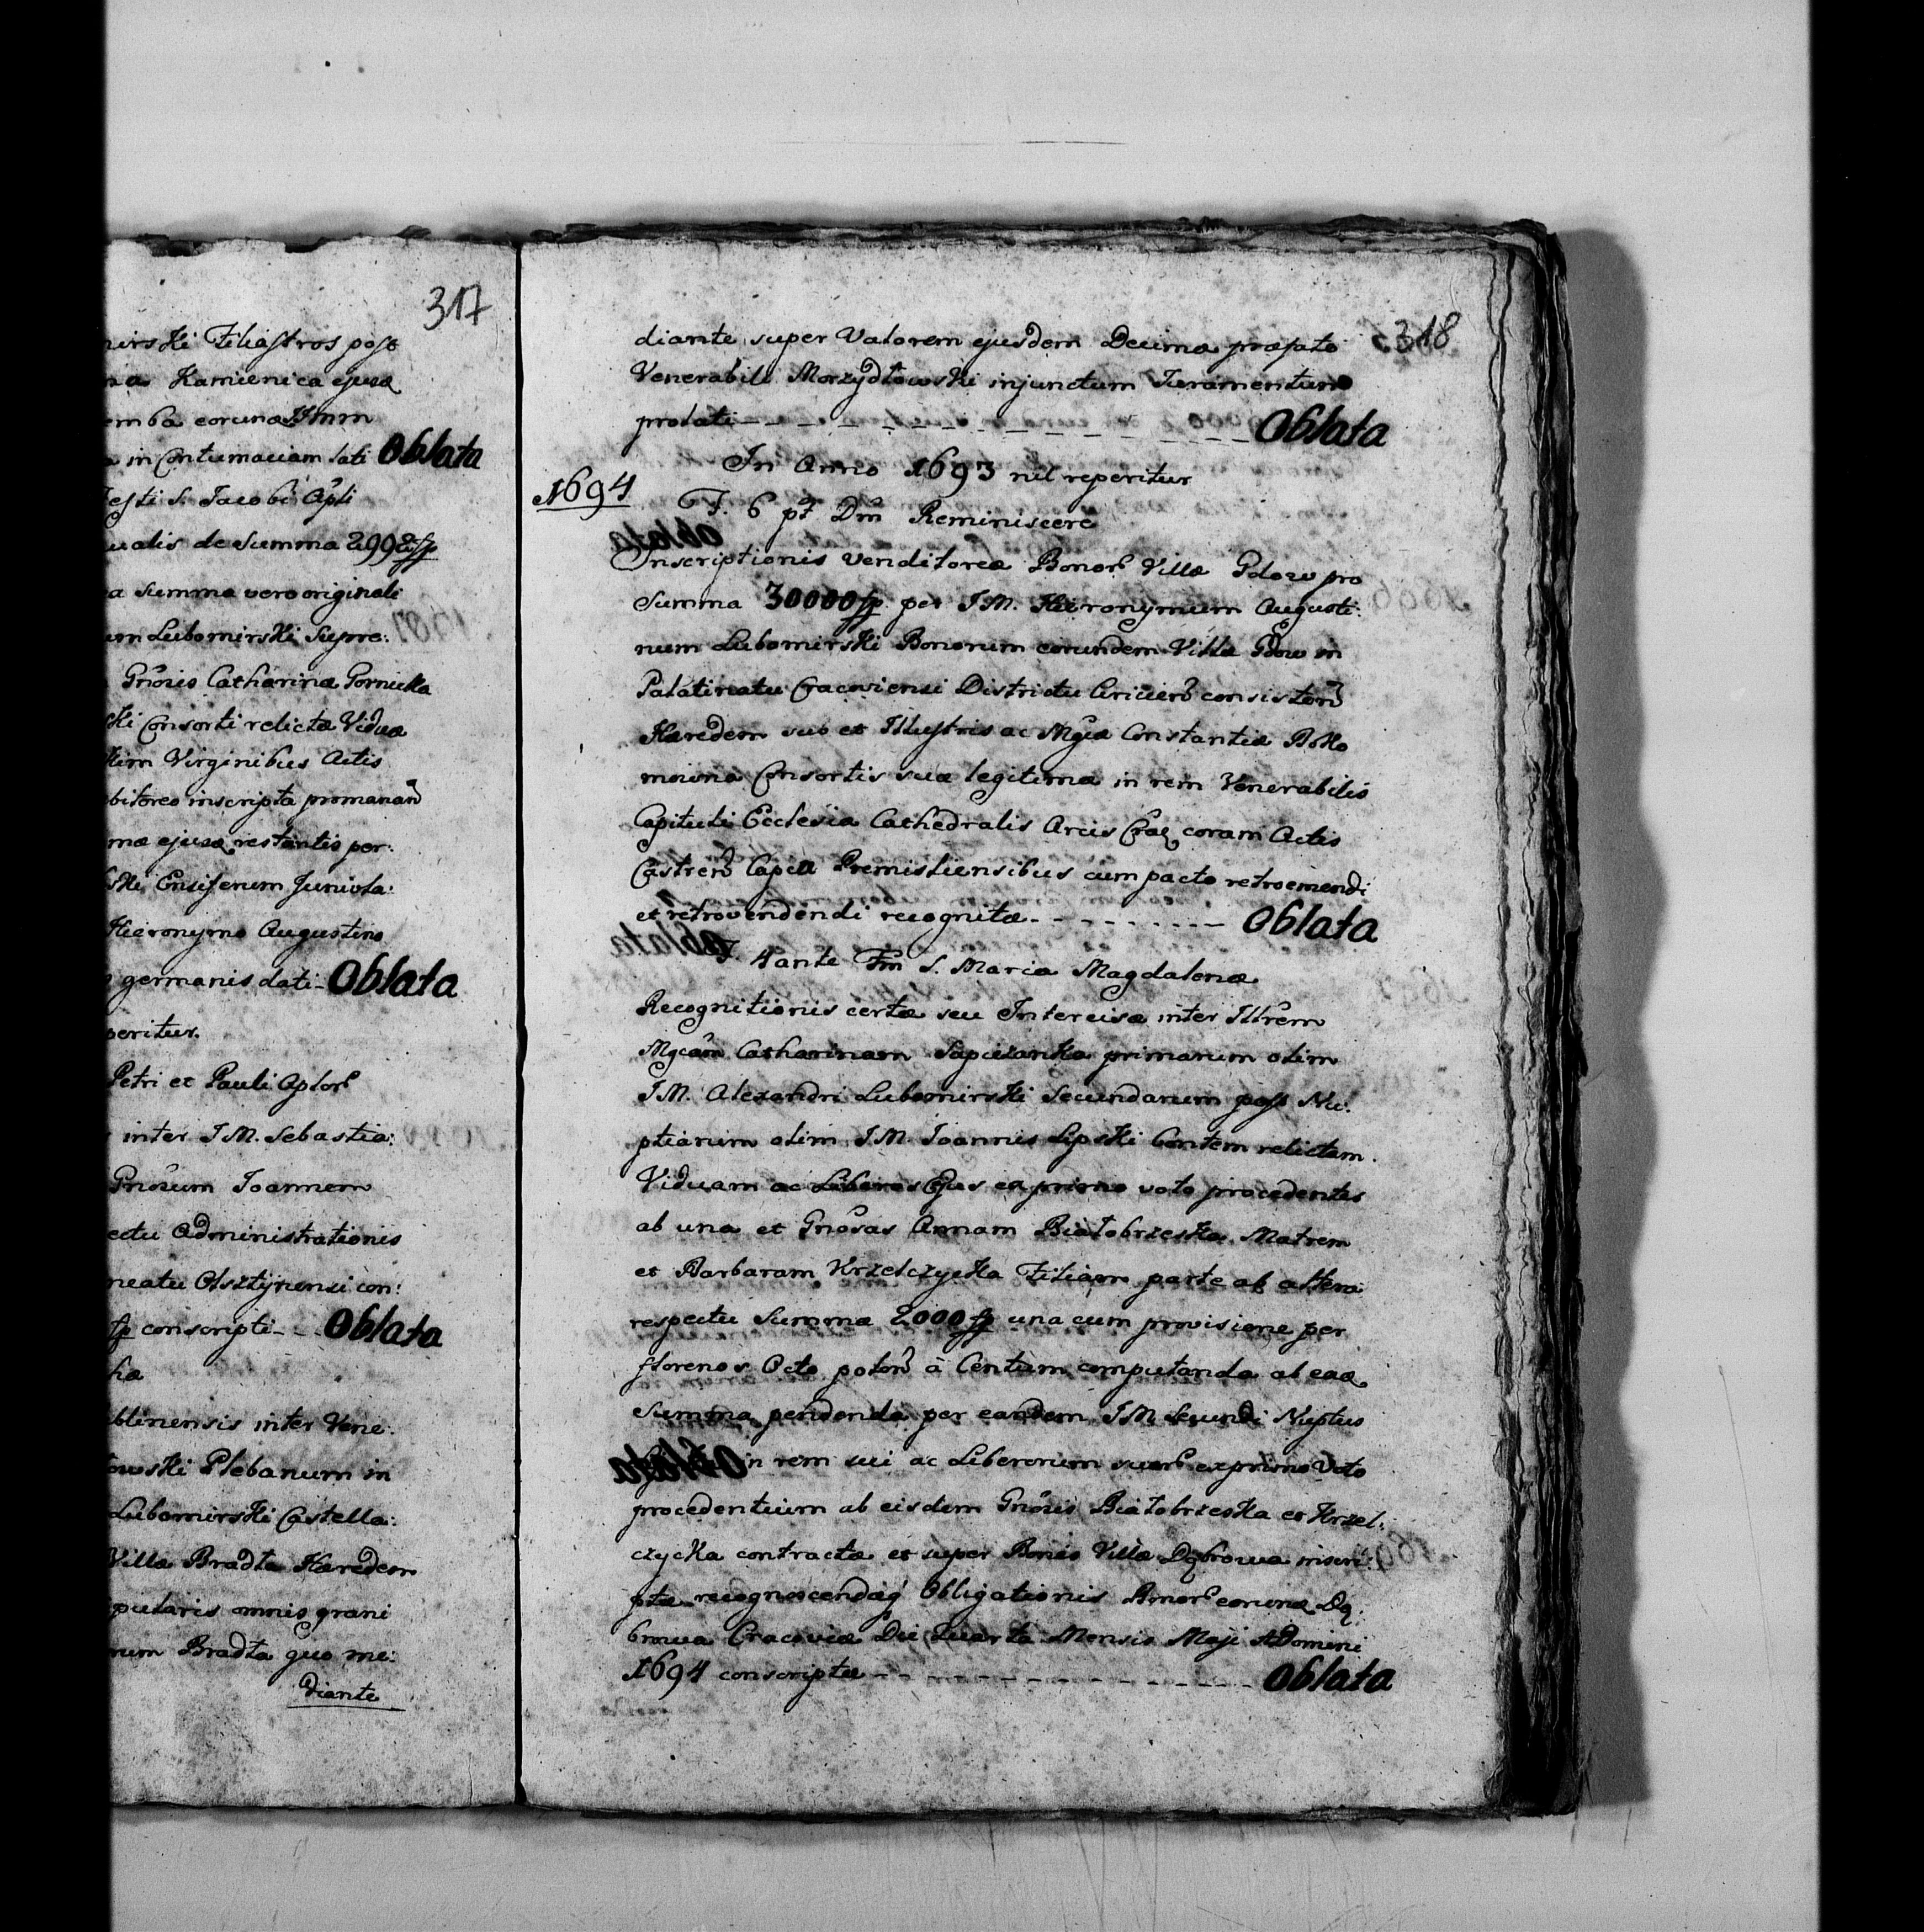 317
irski Filiastros post
na Kamienica ejusd
emba eorund IImm
in Contumaciam lati Oblata
Festi S. Jacobi Apli
ualis de Summa 2992 fp
a summa vero originali
um Lubomirski Supre:
Gnosis Catharina Gornicka
ski Consorti relicta Vidua
kim Virginibus Actis
bitoreo inscripta promanan
ma ejusd restantis per:
ski Ensiferum Juniola:
Hieronymo Augustino
germanis dati - Oblata
peritur.
Petri et Pauli Aplor
inter I M. Sebastia:
Gnosum Joannem
ectu Administrationis
neatu Olsztynensi con:
fp conscripti - - - Oblata
ha
blinensis inter Vene:
owski Plebanum in
Lubomirski Castella:
Villa Bradta Haredem
pularis omnis grani
rum Bradta quo me:
diante
318
diante super Valorem ejusdem Decima præfato
Venerabili Morzydłowski injunctum Juramentum
prolati - - - - Oblata
In Anno 1693 nil reperitur
1694
F. 6 pt Dm Reminiscere
Inscriptionis Venditoreæ Bonor Villæ Gdow pro
Summa 30000 fp. per I M. Hieronymum Augusti:
num Lubomirski Bonorum eorundem Villæ Gdow in
Palatinatu Cracoviensi Districtu consisten
Hæredem sub et Illustris ac Mgcæ Constantiæ Boko
moiuna Consortis suæ legitimæ in rem Venerabilis
Capituli Ecclesiæ Cathedralis Arcis Crac coram Actis
Castren Capta Premisliensibus cum pacto retroemendi
et retrovendendi recognitæ - - - - Oblata
F. 4 ante Fm S. Mariæ Magdalenæ
Recognitionis certæ seu Intercisæ inter Illrem
Mgcam Catharinam Sapiezanka primarum olim
I M. Alexandri Lubomirski Secundarum post Nu:
ptiarum olim I M. Joannis Lipski Contem relictam
Viduam ac Liberos Ejus ex primo voto procedentes
ab una et Gnosas Annam Białobrzeska Matrem
et Barbaram Krzelczycka Filiam parte ab altera
respectu Summæ 2000 fp una cum provisione per
florenos Octo polon à Centum computanda ab ead
Summa pendenda per eandem I M. Secundi Nuptus
in rem sui ac Liberorum suor ex primo Voto
procedentium ab eisdem Gnosis Białobrzeska et Krzel:
czycka contractæ et super Bonis Villæ Dąbrowa inscri:
ptæ recognoscendæq Obligationis Bonor eorund Dą:
browa Cracoviæ Die Quarta Mensis Maji A Domini
1694 conscriptæ - - - - Oblata